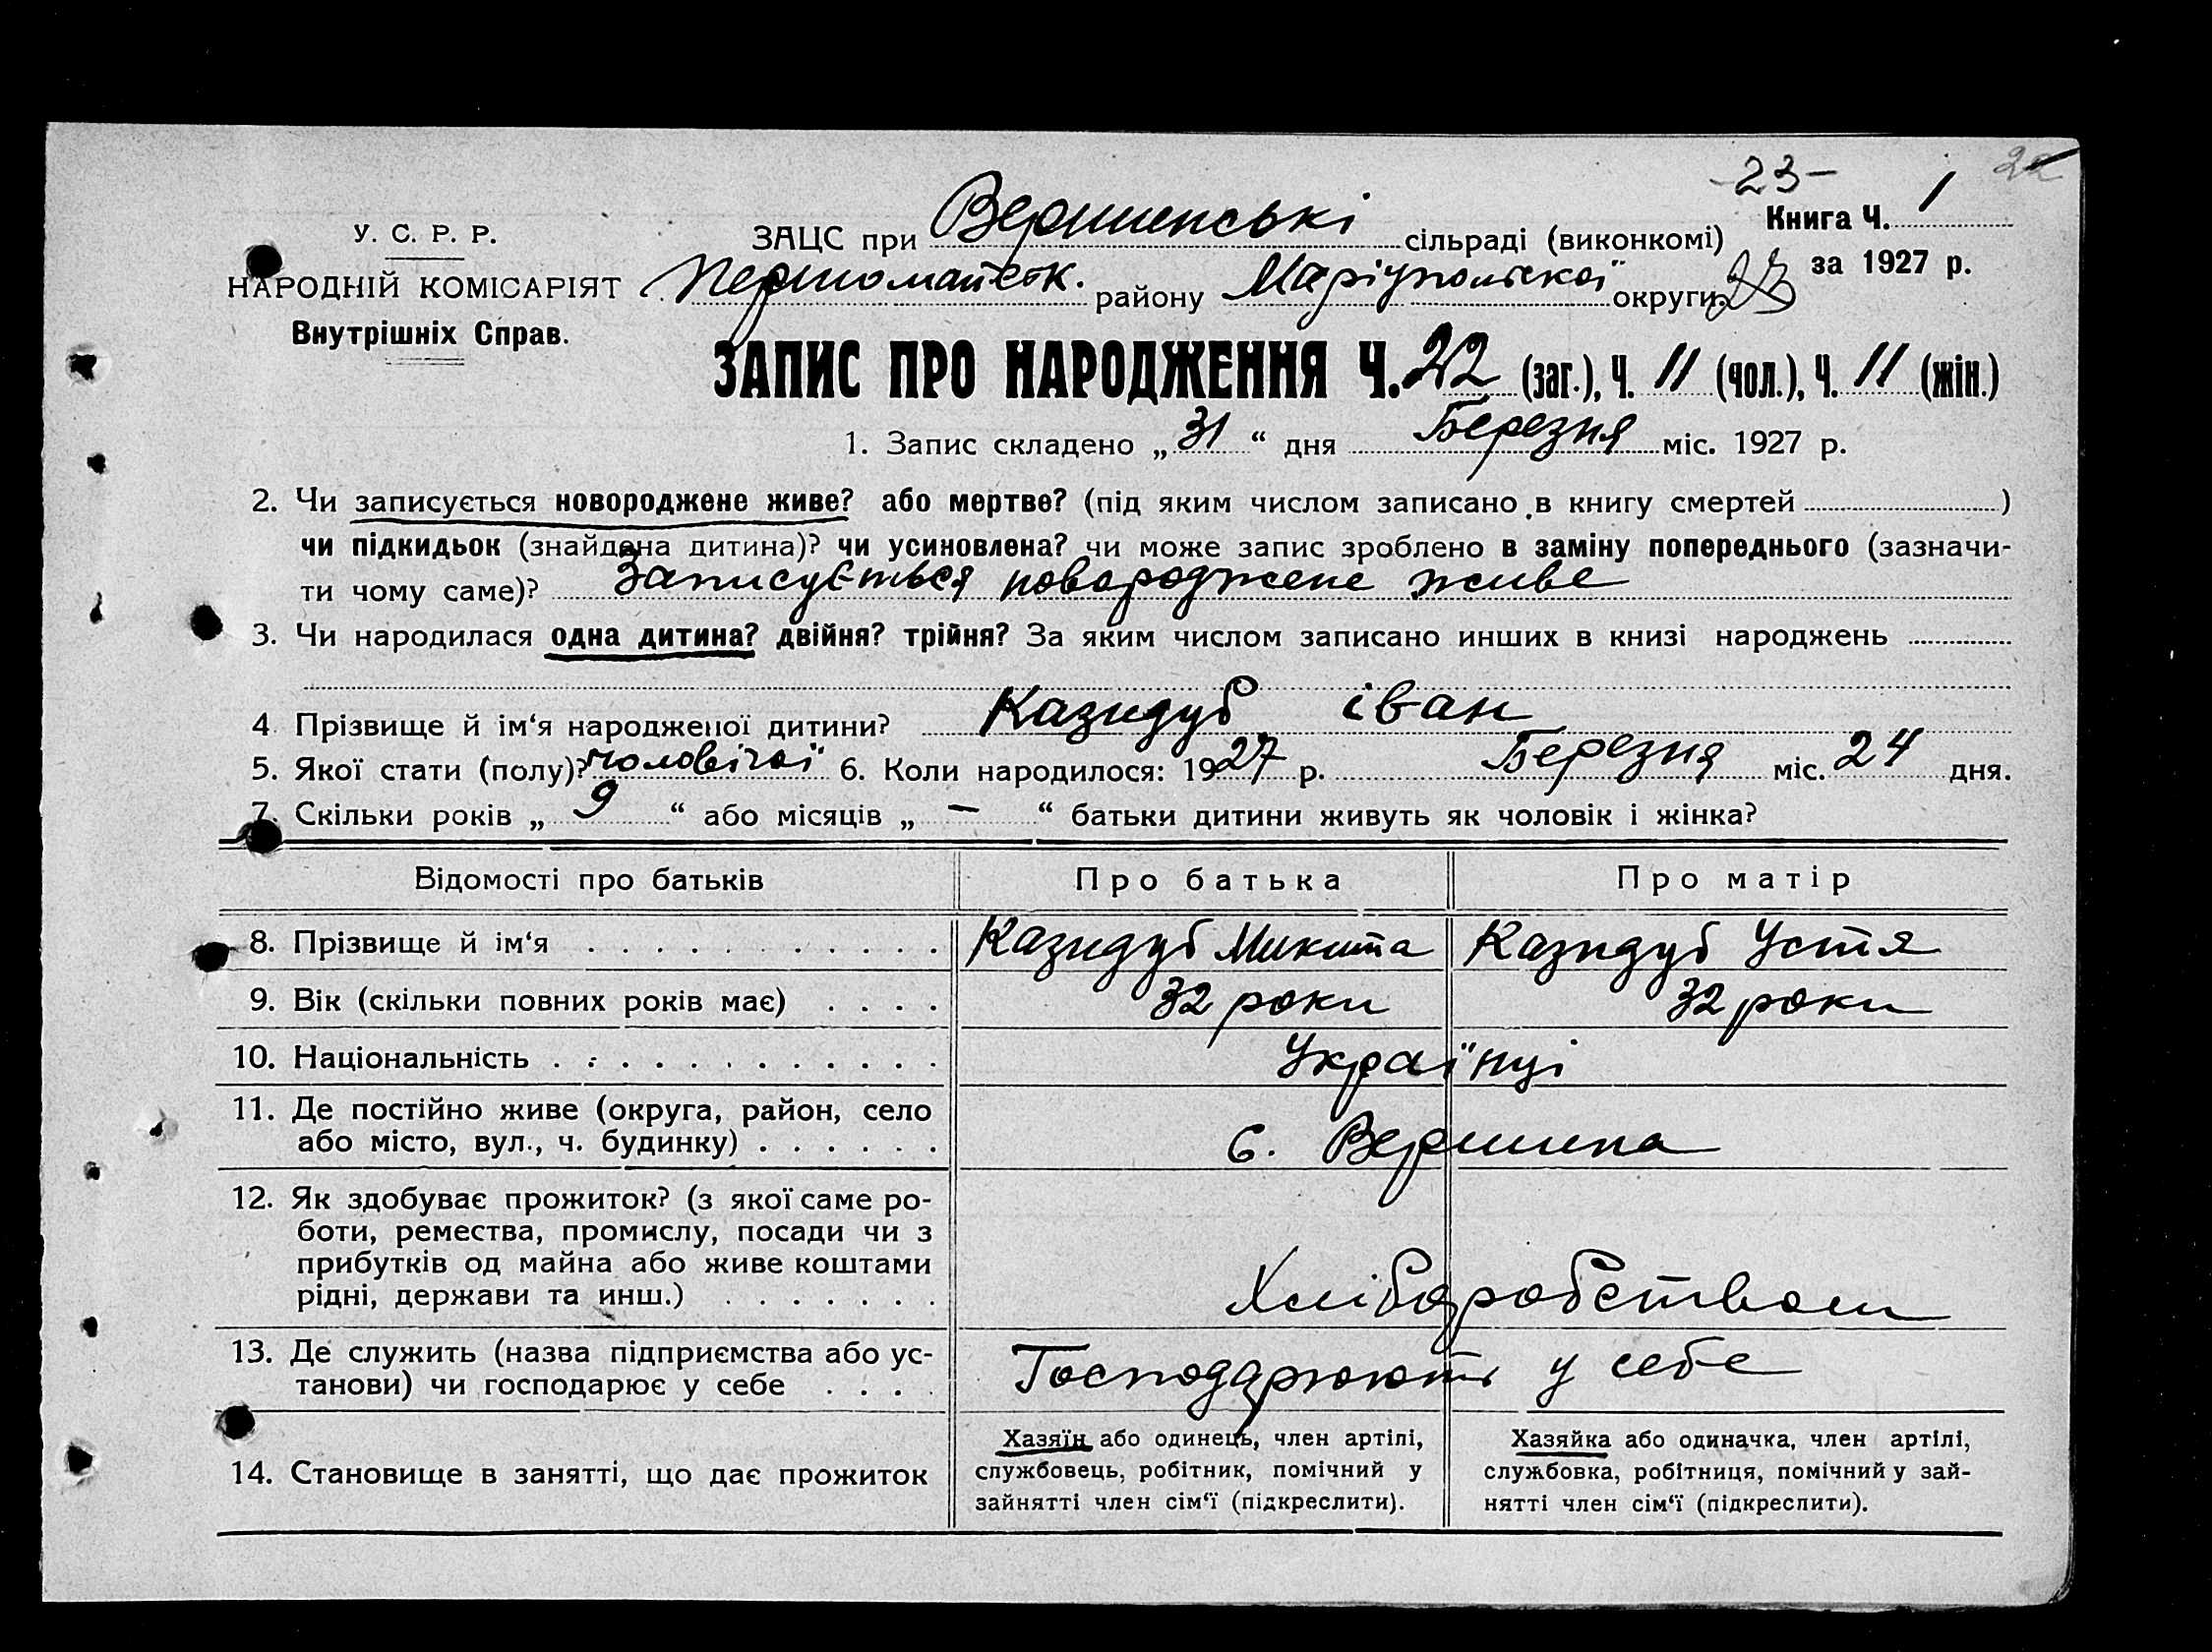 -23-
22
У. С. Р. Р.
НАРОДНІЙ КОМІСАРІЯТ
Внутрішніх Справ.
ЗАЦС при Вершинські сільраді (виконкомі)
Книга Ч. 1
Першомайськ. району Маріупольської округи
за 1927 р.
ЗАПИС ПРО НАРОДЖЕННЯ Ч. 22 (заг.), Ч. 11 (чол.), Ч. 11 (жін.)
1. Запис складено „ 31 “ дня Березня міс. 1927 р.
2. Чи записується новороджене живе? або мертве? (під яким числом записано в книгу смертей )
чи підкидьок (знайдена дитина)? чи усиновлена? чи може запис зроблено в заміну попереднього (зазначи-
ти чому саме)? Записується новороджене живе
3. Чи народилася одна дитина? двійня? трійня? За яким числом записано инших в книзі народжень
4 Прізвище й ім‘я народженої дитини? Казидуб іван
5. Якої стати (полу)? чоловічої 6. Коли народилося: 1927 р. Березня міс. 24 дня.
7. Скільки років „ 9 “ або місяців „ — “ батьки дитини живуть як чоловік і жінка?
Відомості про батьків Про батька Про матір
8. Прізвище й ім‘я . . . . . . . . . . . Казидуб Микита Казидуб Устя
9. Вік (скільки повних років має) . . . . 32 роки 32 роки
10. Національність . . . . . . . . . . . Українці
11. Де постійно живе (округа, район, село
або місто, вул., ч. будинку) . . . . . . с. Вершина
12. Як здобуває прожиток? (з якої саме ро-
боти, ремества, промислу, посади чи з
прибутків од майна або живе коштами
рідні, держави та инш.) . . . . . . . Хліборобством
13. Де служить (назва підприємства або ус-
танови) чи господарює у себе . . . . Господарюють у себе
14. Становище в занятті, що дає прожиток
Хазяїн або одинець, член артілі,
службовець, робітник, помічний у
зайнятті член сім‘ї (підкреслити).
Хазяйка або одиначка, член артілі,
службовка, робітниця, помічний у зай-
нятті член сім‘ї (підкреслити).